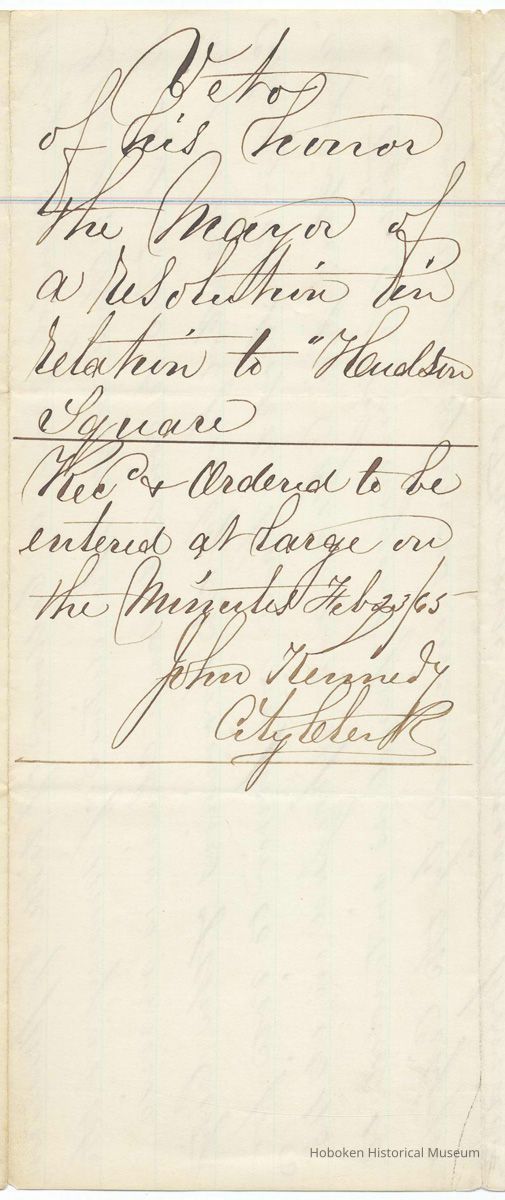 Veto
of his honor
the Mayor of
a resolution in
relation to "Hudson
Square
Recd & Ordered to be
entered at large on
the Minutes Feb 23/65
John Kennedy
City Clerk
Hoboken Historical Museum